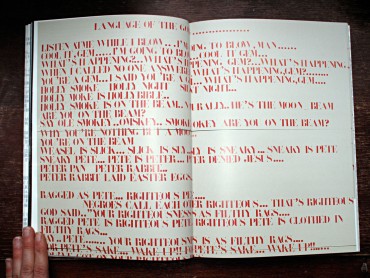 LANGUAGE OF THE
LISTEN WHILE I BLOW....I'M GOING TO BLOW, MAN.....
COOL IT, GEM.....I'M GOING TO COOL IT, GEM...
WHAT'S HAPPENING?...WHAT'S HAPPENING?...WHAT'S HAPPENING
WHEN I CALLED NO ONE ANSWERED WHAT'S HAPPENING, GEM?......
YOU'RE A GEM... I SAID YOU'RE A WHAT'S HAPPENING, GEM...
HOLY SMOKE HOLY NIGHT NIGHT...
HOLY MOKE IS HOLY
HOLY SMOKE IS ON THE BEAM... HE'S THE MOON BEAM
ARE YOU ON THE BEAM?
SAY OLE SMOKEY... ARE YOU ON THE BEAM?
WHY YOU'RE NOTHING BUT A
YOU'RE ON THE BEAM
WEASEL IS SLICK... SLICK IS SLY... IS SNEAKY... SNEAKY IS PETE
SNEAKY PETE... PETE IS PETER... PETER DENIED JESUS....
PETER PAN PETER RABBIT...
PETER RABBIT LAID EASTER EGGS
RAGGED AS PETE... RIGHTEOUS PETE....
NEGROES CALL EACH OTHER RIGHTEOUS... THAT'S RIGHTEOUS
GOD SAID..."YOUR RIGHTEOUSNESS AS FILTHY RAGS....
RAGGED PETE IS RIGHTEOUS PETE... RIGHTEOUS PETE IS CLOTHED IN
FILTHY RAGS...
PETE...... YOUR RIGHTEOUSNESS IS AS FILTHY RAGS....
PETE'S SAKE... WAKE UP!! PETE'S SAKE... WAKE UP!!